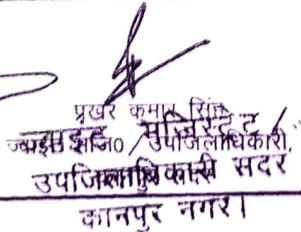 प्रखर कुमार सिंह
ज्वाइन्ट मजिस्ट्रेट / उपजिलाधिकारी,
उपजिलाधिकारी सदर
कानपुर नगर।